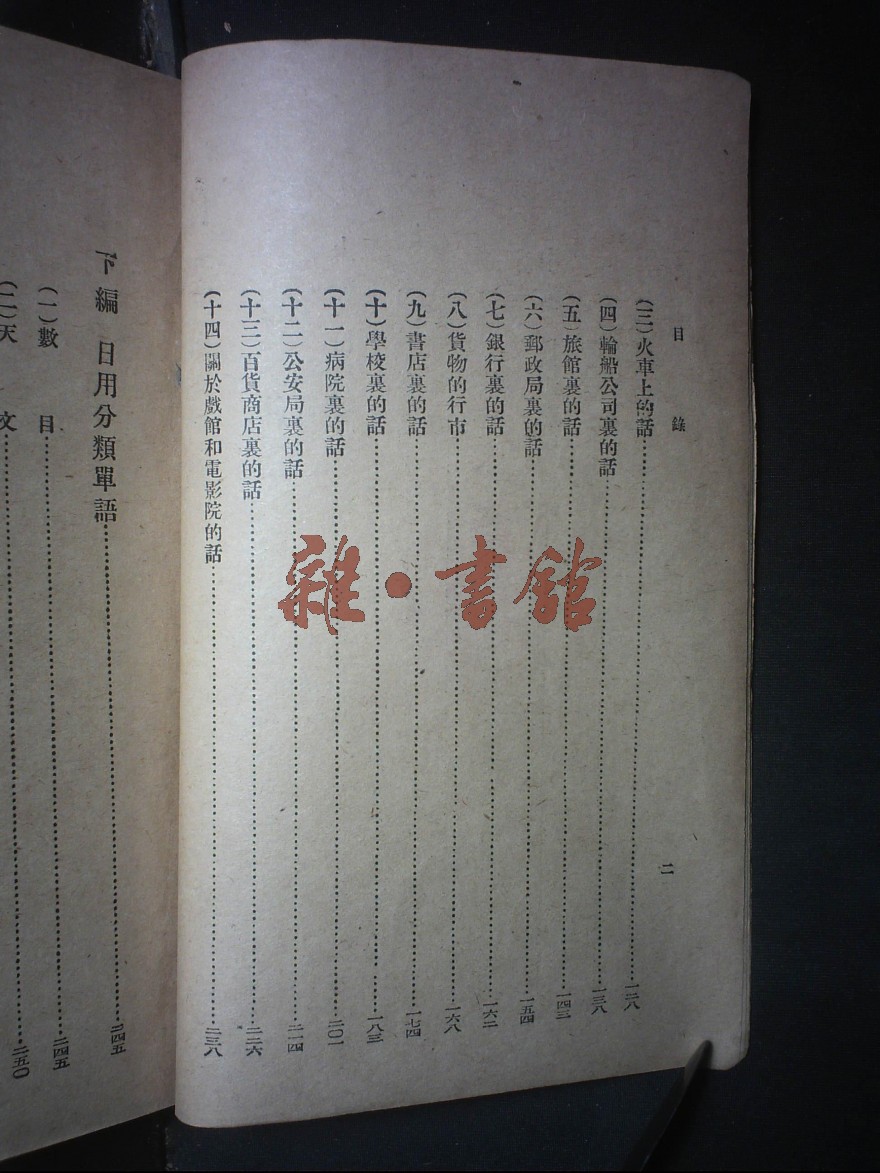 目錄
二
(三)火車上的話……一二八
(四)輪船公司裏的話……一三八
(五)旅館裏的話……一四三
(六)郵政局裏的話……一五四
(七)銀行裏的話……一六二
(八)貨物的行市……一六八
(九)書店裏的話……一七四
(十)學校裏的話……一八三
(十一)病院裏的話……二〇一
(十二)公安局裏的話……二一四
(十三)百貨商店裏的話……二二六
(十四)關於戲館和電影院的話……二三八
下編 日用分類單語……二四五
(一)數目……二四五
(二)天文……二五〇
雜·書館